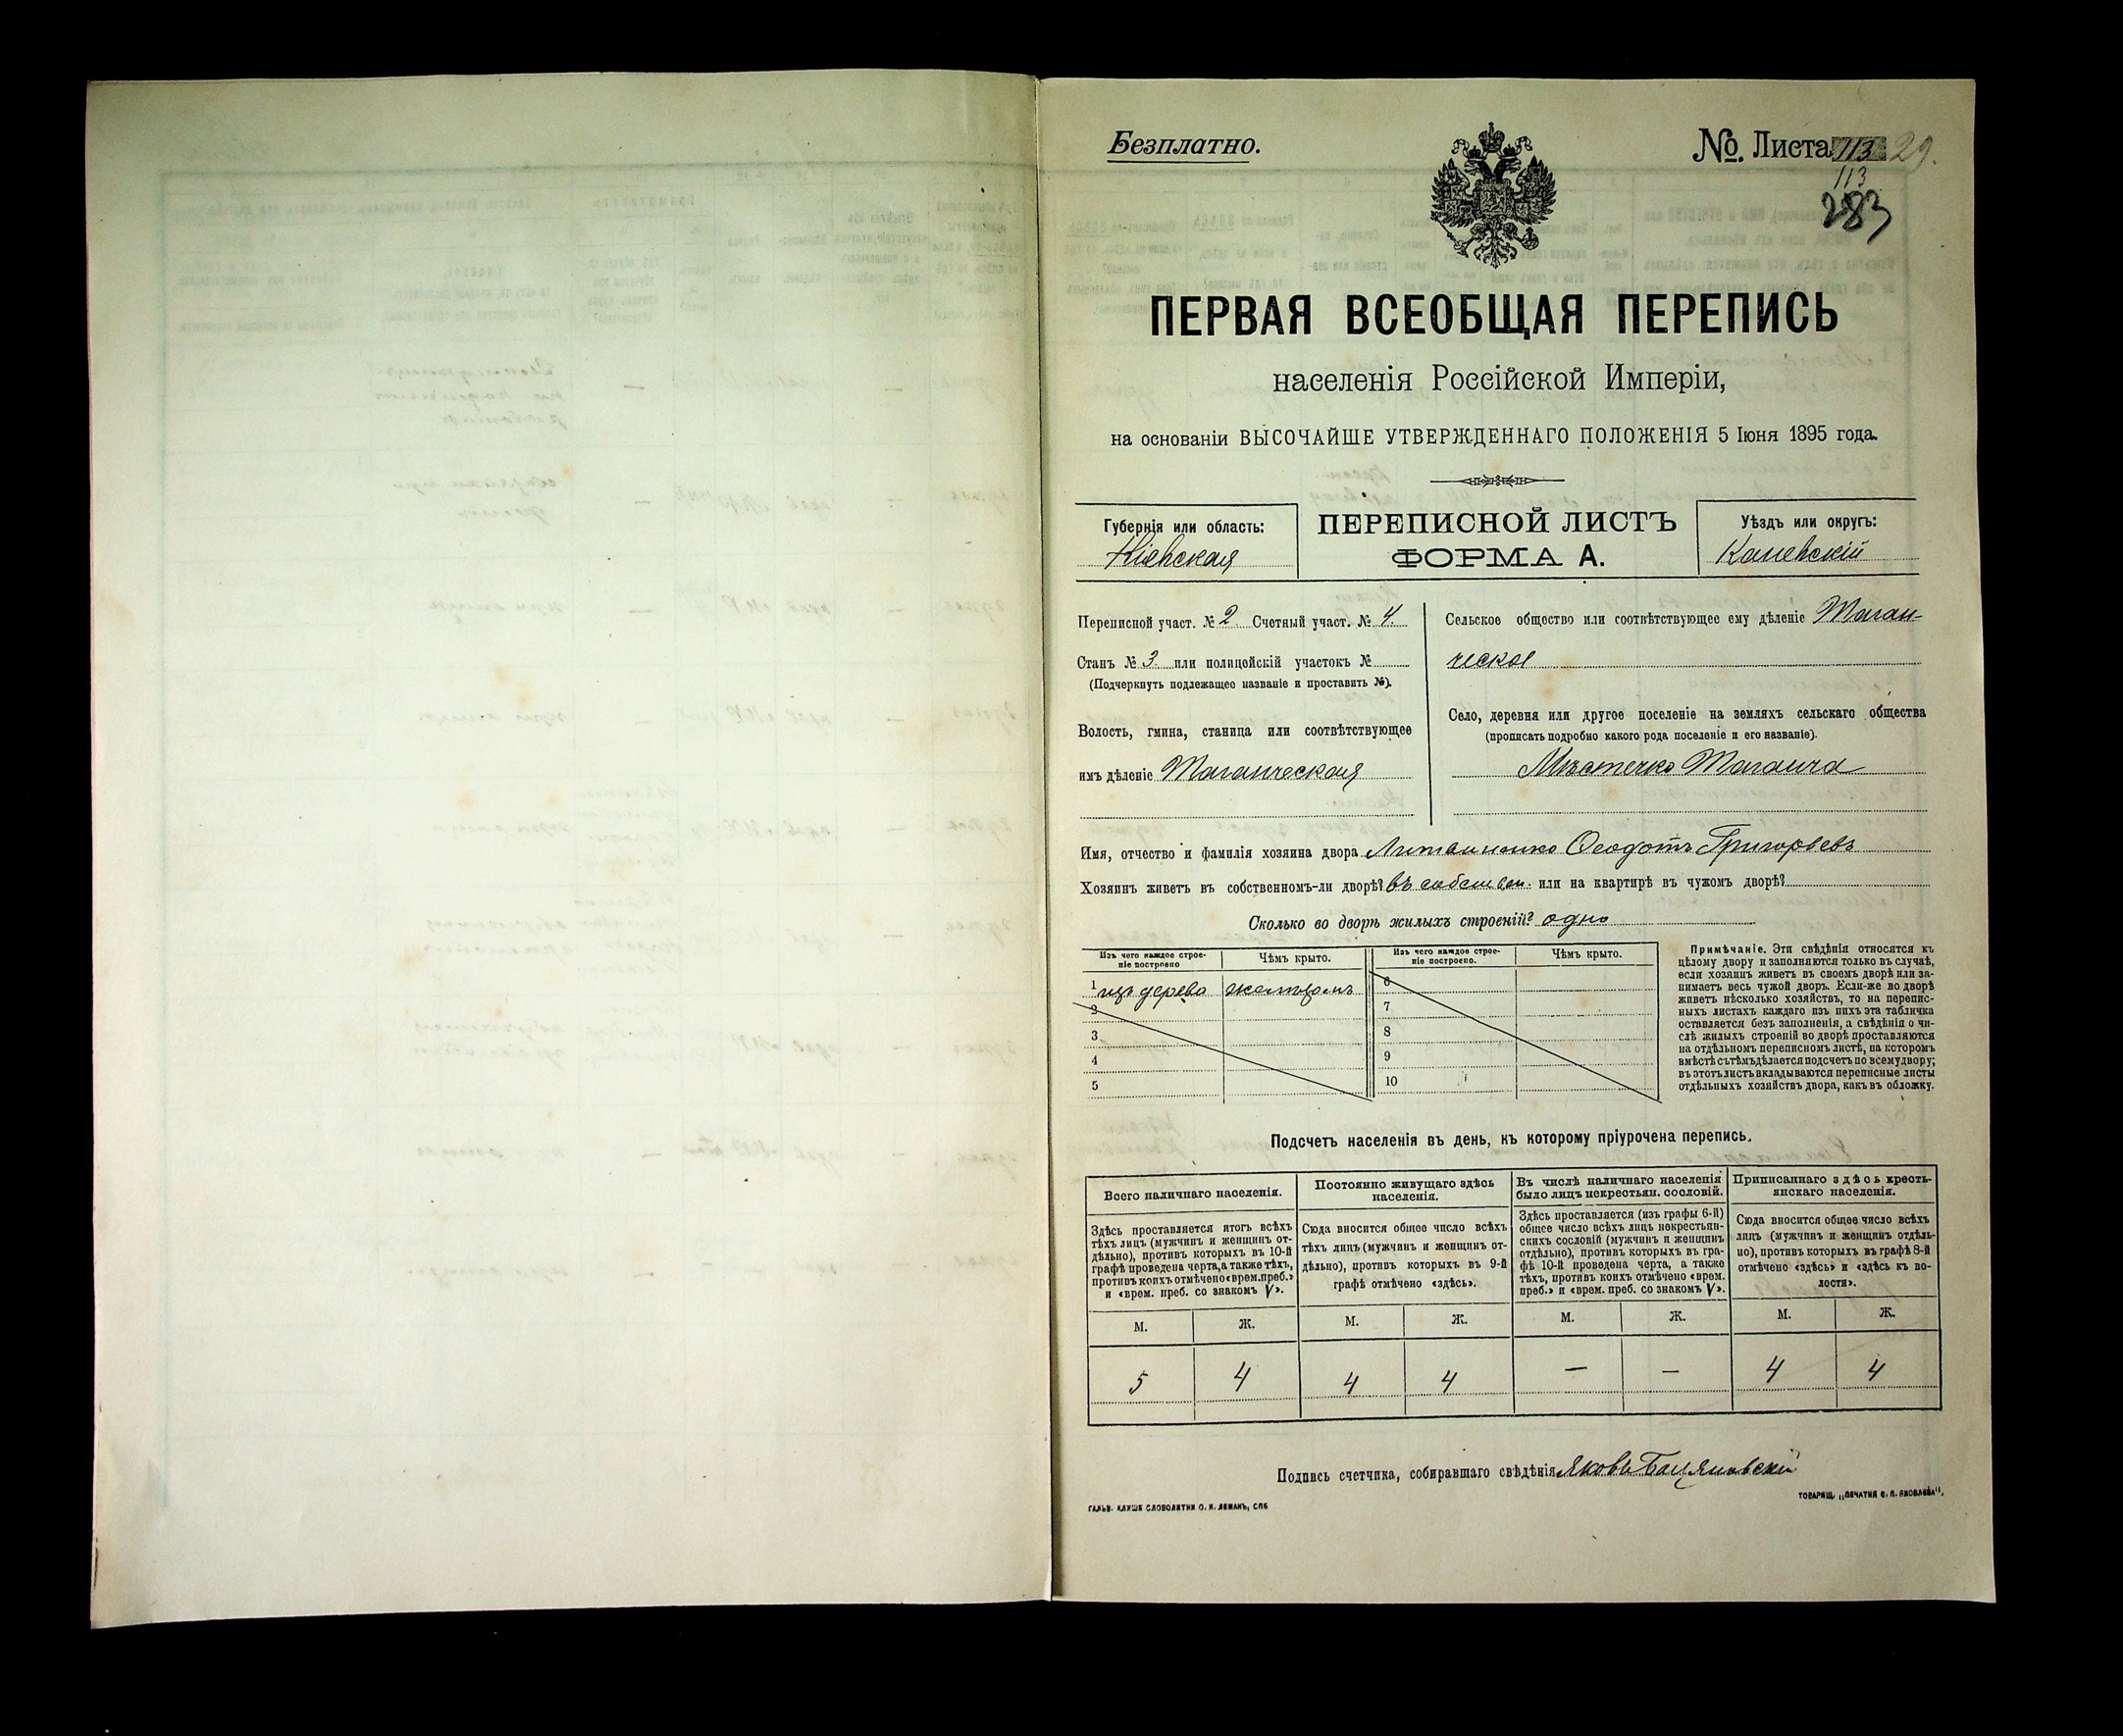 Безплатно.
№. Листа 113 29.
113
283
ПЕРВАЯ ВСЕОБЩАЯ ПЕРЕПИСЬ
населенія Россійской Имперіи,
на основаніи ВЫСОЧАЙШЕ УТВЕРЖДЕННАГО ПОЛОЖЕНІЯ 5 Іюня 1895 года.
Губернія или область:
Кіевская
ПЕРЕПИСНОЙ ЛИСТЪ
ФОРМА А.
Уѣздъ или округъ:
Каневскій
Переписной участ. № 2. Счетный участ. № 4.
Станъ № 3. или полицейскій участокъ №
(Подчеркнуть подлежащее названіе и проставить №).
Волость, гмина, станица или соотвѣтствующее
имъ дѣленіе Таганческая
Сельское общество или соотвѣтствующее ему дѣленіе Таган-
ческое
Село, деревня или другое поселеніе на земляхъ сельскаго общества
(прописать подробно какого рода поселеніе и его названіе).
Мѣстечко Таганча
Имя, отчество и фамилія хозяина двора Ѳеодотъ Григорьевъ
Хозяинъ живетъ въ собственномъ-ли дворѣ? въ собствен. или на квартирѣ въ чужомъ дворѣ?
Сколько во дворѣ жилыхъ строеній? одно
Изъ чего каждое строе-
ніе построено
Чѣмъ крыто.
Изъ чего каждое строе-
ніе построено.
Чѣмъ крыто.
1 изъ дерева
2
3
4
5
6
7
8
9
10
Примѣчаніе. Эти свѣдѣнія относятся къ
цѣлому двору и заполняются только въ случаѣ,
если хозяинъ живетъ въ своемъ дворѣ или за-
нимаетъ весь чужой дворъ. Если-же во дворѣ
живетъ нѣсколько хозяйствъ, то на перепис-
ныхъ листахъ каждаго изъ нихъ эта табличка
оставляется безъ заполненія, а свѣдѣнія о чи-
слѣ жилыхъ строеній во дворѣ проставляются
на отдѣльномъ переписномъ листѣ, на которомъ
вмѣстѣ съ тѣмъ дѣлается подсчетъ по всему двору;
въ этотъ листъ вкладываются переписные листы
отдѣльныхъ хозяйствъ двора, какъ въ обложку.
Подсчетъ населенія въ день, къ которому пріурочена перепись.
Всего наличнаго населенія.
Постоянно живущаго здѣсь
населенія.
Въ числѣ наличнаго населенія
было лицъ некрестьян. сословій.
Приписаннаго здѣсь кресть-
янскаго населенія.
Здѣсь проставляется итогъ всѣхъ
тѣхъ лицъ (мужчинъ и женщинъ от-
дѣльно), противъ которыхъ въ 10-й
графѣ проведена черта, а также тѣхъ,
противъ коихъ отмѣчено «врем. преб.»
и «врем. преб. со знакомъ V».
Сюда вносится общее число всѣхъ
тѣхъ лицъ (мужчинъ и женщинъ от-
дѣльно), противъ которыхъ въ 9-й
графѣ отмѣчено «здѣсь».
Здѣсь проставляется (изъ графы 6-й)
общее число всѣхъ лицъ некрестьян-
скихъ сословій (мужчинъ и женщинъ
отдѣльно), противъ которыхъ въ гра-
фѣ 10-й проведена черта, а также
тѣхъ, противъ коихъ отмѣчено «врем.
преб.» и «врем. преб. со знакомъ V».
Сюда вносится общее число всѣхъ
лицъ (мужчинъ и женщинъ отдѣль-
но), противъ которыхъ въ графѣ 8-й
отмѣчено «здѣсь» и «здѣсь къ во-
лости».
М. Ж. М. Ж. М. Ж. М. Ж.
5 4 4 4 — — 4 4
Подпись счетчика, собиравшаго свѣдѣнія Яковъ
ГАЛЬВ. КЛИШЕ СЛОВОЛИТНИ О. И. ЛЕМАНЪ, СПБ
ТОВАРИЩ. „ПЕЧАТНЯ С. П. ЯКОВЛЕВА“.